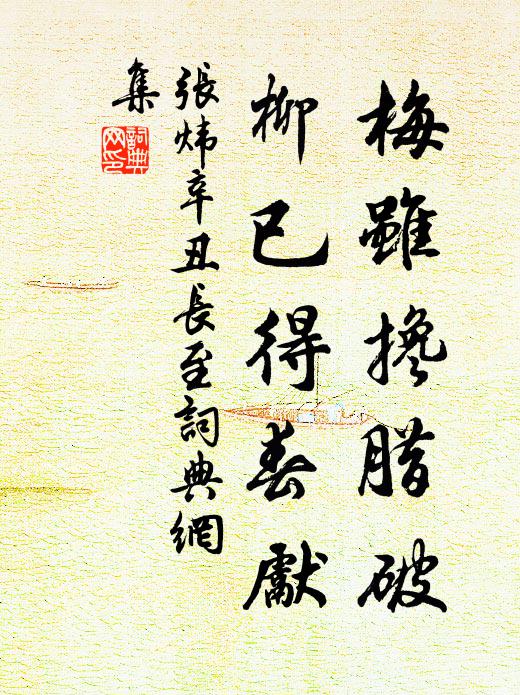 梅雖搀腊破
柳已得春獻
張炜辛丑長至詞典網
集
詞典
网印